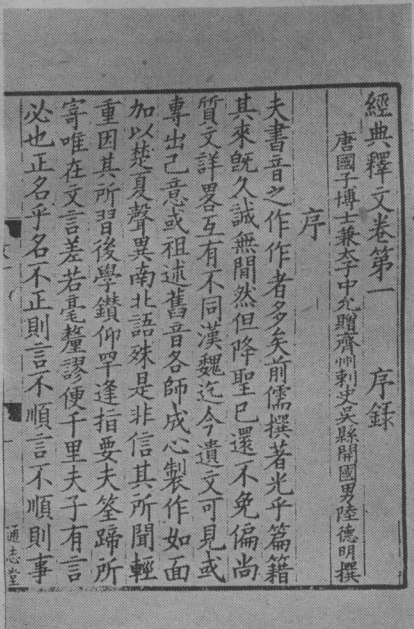 經典釋文卷第一　序錄
唐國子博士兼太子中允贈齊州刺史吳縣開國男陸德明撰
序
夫書音之作作者多矣前儒撰著光乎篇籍
其來旣久誠無閒然但降聖已還不免偏尚
質文詳畧互有不同漢魏迄今遺文可見或
專出己意或祖述舊音各師成心製作如面
加以楚夏聲異南北語殊是非信其所聞輕
重因其所習後學鑽仰罕逢指要夫筌蹄所
寄唯在文言差若毫釐謬便千里夫子有言
必也正名乎名不正則言不順言不順則事
通志堂